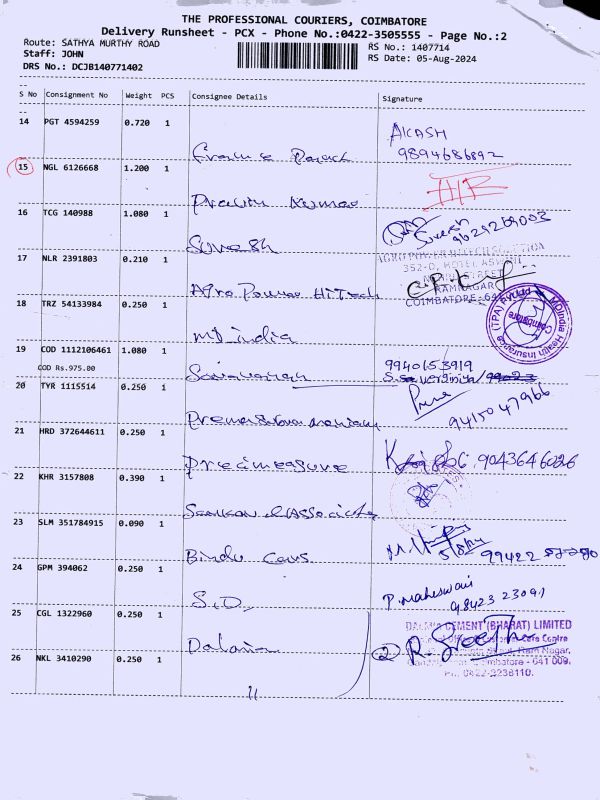 THE PROFESSIONAL COURIERS, COIMBATORE
Delivery Runsheet - PCX - Phone No.:0422-3505555 - Page No.:2
Route: SATHYA MURTHY ROAD RS No.: 1407714
Staff: JOHN RS Date: 05-Aug-2024
DRS No.: DCJB140771402
S No Consignment No Weight PCS Consignee Details Signature
14 PGT 4594259 0.720 1
AKASH
9894686892
15 NGL 6126668 1.200 1
Kumar
16 TCG 140988 1.080 1
Suresh 9629269003
Suresh
17 NLR 2391803 0.210 1
352-D, HOTEL ASWINI
RAMNAGAR
COIMBATORE-64
Agro Power HiTech
18 TRZ 54133984 0.250 1
MDIndia Health Insurance (TPA) Private
Coimbatore
MD india
19 COD 1112106461 1.080 1
COD Rs.975.00
9940153919
Saravanan
20 TYR 1115514 0.250 1
9415047966
21 HRD 372644611 0.250 1
Precimeasure 9043646026
22 KHR 3157808 0.390 1
Associate
23 SLM 351784915 0.090 1
5/8/24 99422
Bindu Cars
24 GPM 394062 0.250 1
P. Maheswari
98423 23091
S.D,
25 CGL 1322960 0.250 1
DALMIA CEMENT (BHARAT) LIMITED
Care Centre
Ram Nagar,
Coimbatore - 641 009.
Ph. 0422-2238110.
Dalmia
② R. Sreeth
26 NKL 3410290 0.250 1
11